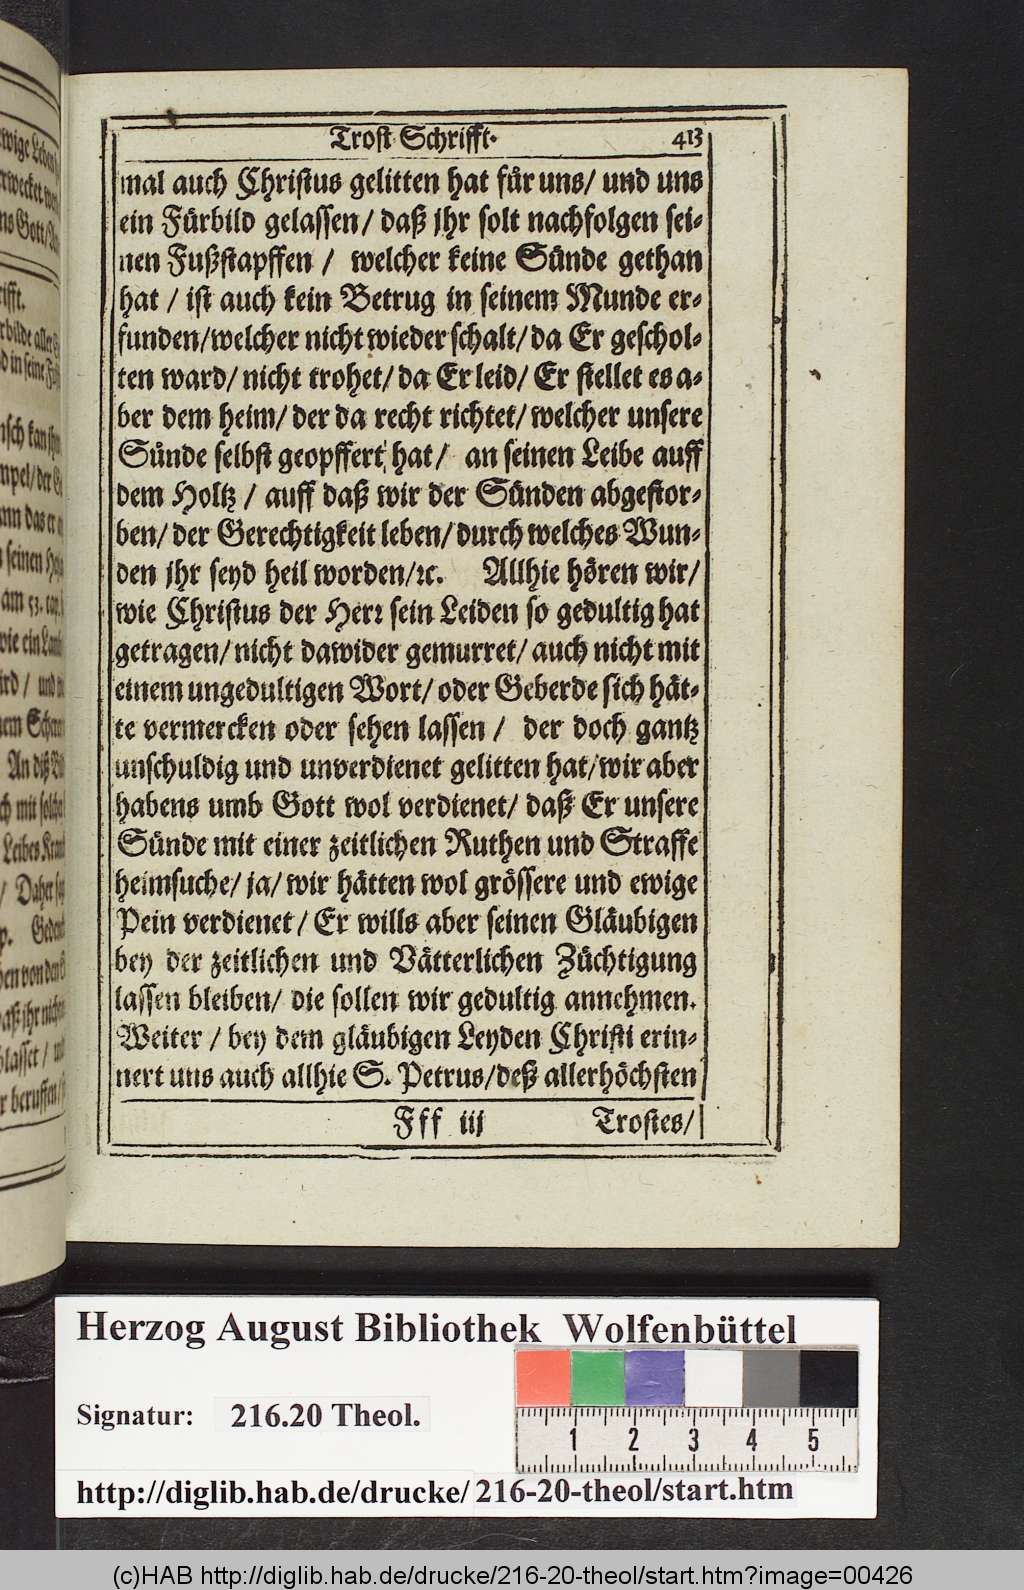 Trost Schrifft. 413
mal auch Christus gelitten hat für uns/ und uns
ein Fürbild gelassen/ daß jhr solt nachfolgen sei-
nen Fußstapffen / welcher keine Sünde gethan
hat / ist auch kein Betrug in seinem Munde er-
funden/welcher nicht wieder schalt/ da Er geschol-
ten ward/ nicht trohet/ da Er leid/ Er stellet es a-
ber dem heim/ der da recht richtet/ welcher unsere
Sünde selbst geopffert hat/ an seinen Leibe auff
dem Holtz / auff daß wir der Sünden abgestor-
ben/ der Gerechtigkeit leben/ durch welches Wun-
den jhr seyd heil worden/ꝛc. Allhie hören wir/
wie Christus der Herꝛ sein Leiden so gedultig hat
getragen/ nicht dawider gemurret/ auch nicht mit
einem ungedultigen Wort/ oder Geberde sich hät-
te vermercken oder sehen lassen / der doch gantz
unschuldig und unverdienet gelitten hat/wir aber
habens umb Gott wol verdienet/ daß Er unsere
Sünde mit einer zeitlichen Ruthen und Straffe
heimsuche/ ja/ wir hätten wol grössere und ewige
Pein verdienet/ Er wills aber seinen Gläubigen
bey der zeitlichen und Vätterlichen Züchtigung
lassen bleiben/ die sollen wir gedultig annehmen.
Weiter / bey dem gläubigen Leyden Christi erin-
nert uns auch allhie S. Petrus/deß allerhöchsten
Fff iij Trostes/
Herzog August Bibliothek Wolfenbüttel
Signatur: 216.20 Theol.
1 2 3 4 5
http://diglib.hab.de/drucke/216-20-theol/start.htm
(c)HAB http://diglib.hab.de/drucke/216-20-theol/start.htm?image=00426